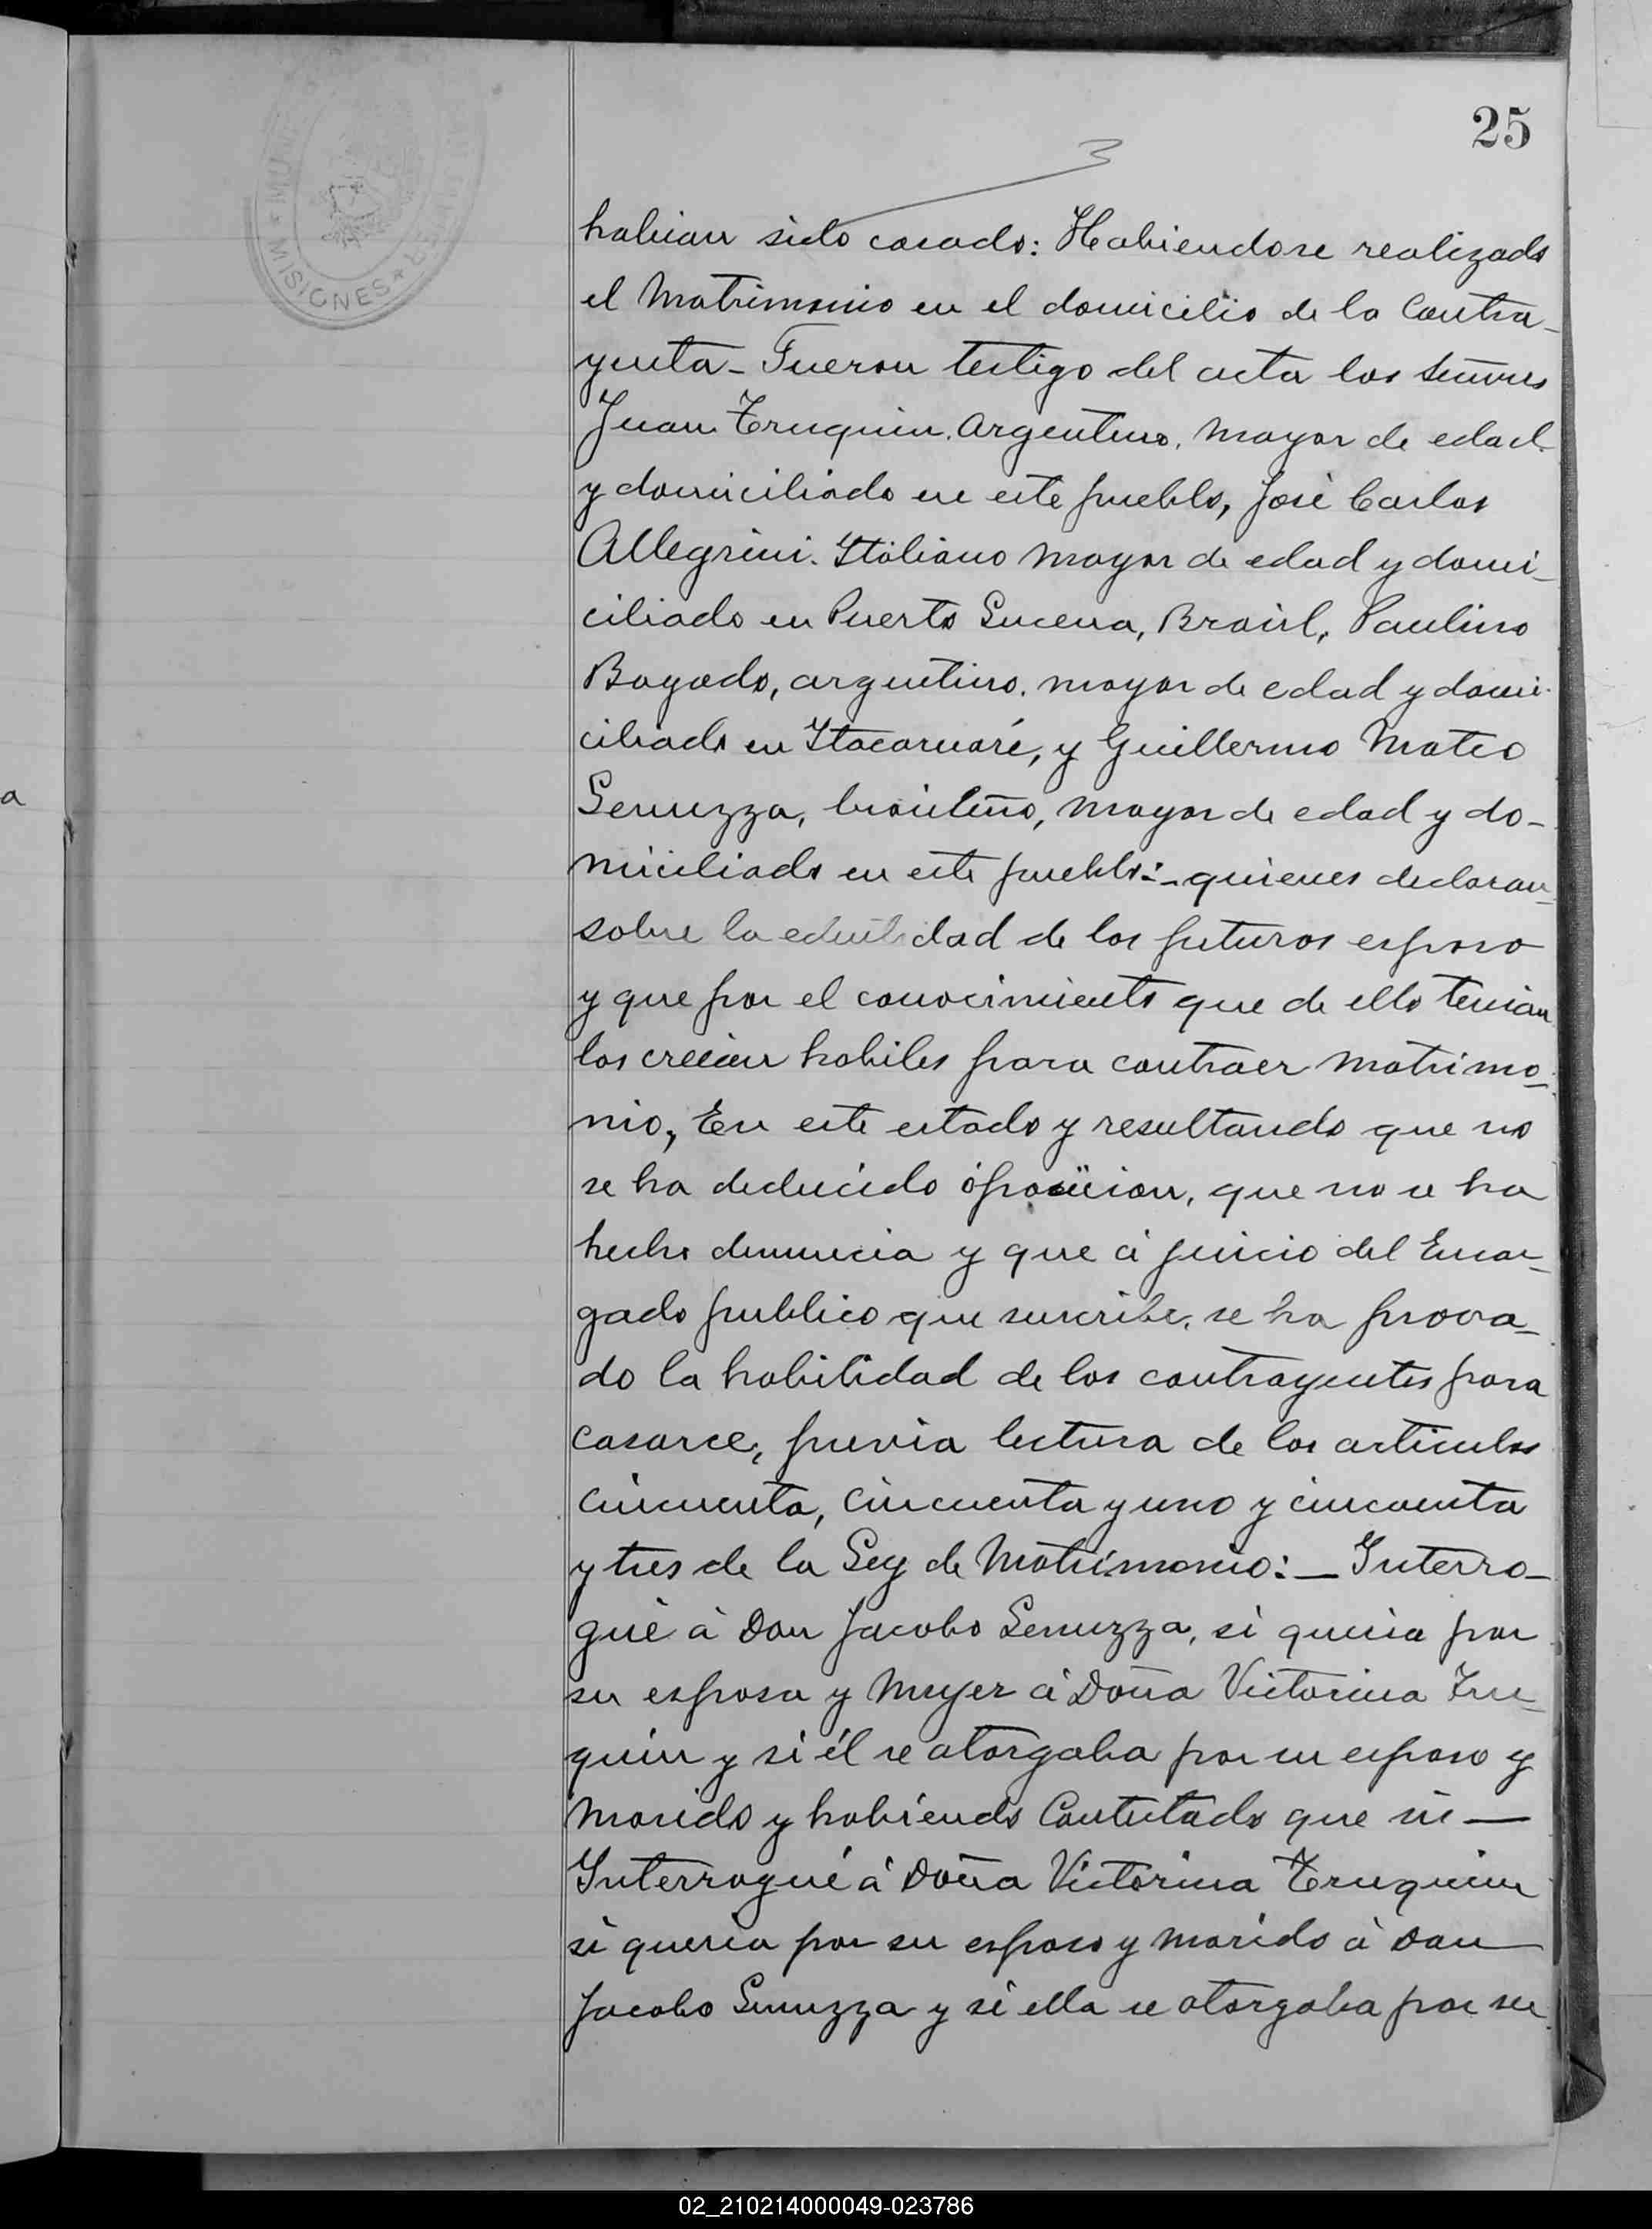 25
3
habian sido casado: Habiendose realizado
el Matrimonio en el domicilio de la Contra-
yenta - Fueron testigo del acta los señores
Juan Truquin. Argentino, mayor de edad
y domiciliado en este pueblo, José Carlos
Allegrini. Italiano mayor de edad y domi-
ciliado en Puerto Lucena, Brasil, Paulino
Bogado, argentino. mayor de edad y domi-
ciliado en Itacaruaré, y Guillermo Mateo
brasileño, mayor de edad y do-
miciliado en este pueblo:- quienes declaran
sobre la dad de los futuros esposo
y que por el conocimiento que de ello tenian
los creian habiles para contraer matrimo-
nio, En este estado y resultando que no
se ha deducido óposicion, que no se ha
hecho denuncia y que á juicio del Encar-
gado publico que suscribe, se ha prova-
do la habilidad de los contrayentes para
casarce, previa lectura de los articulos
cincuenta, cincuenta y uno y cincuenta
y tres de la Ley de Matrimonio:- Interro-
gué á Don Jacobo si queria por
su esposa y Mujer á Doña Victorina Tru-
quin y si él se otorgaba por su esposo y
Marido y habiendo Contestado que si -
Interrogué á Doña Victorina Truquin
si queria por su esposo y marido á Don
Jacobo y si ella se otorgaba por su
MISIONES
a
02_210214000049-023786